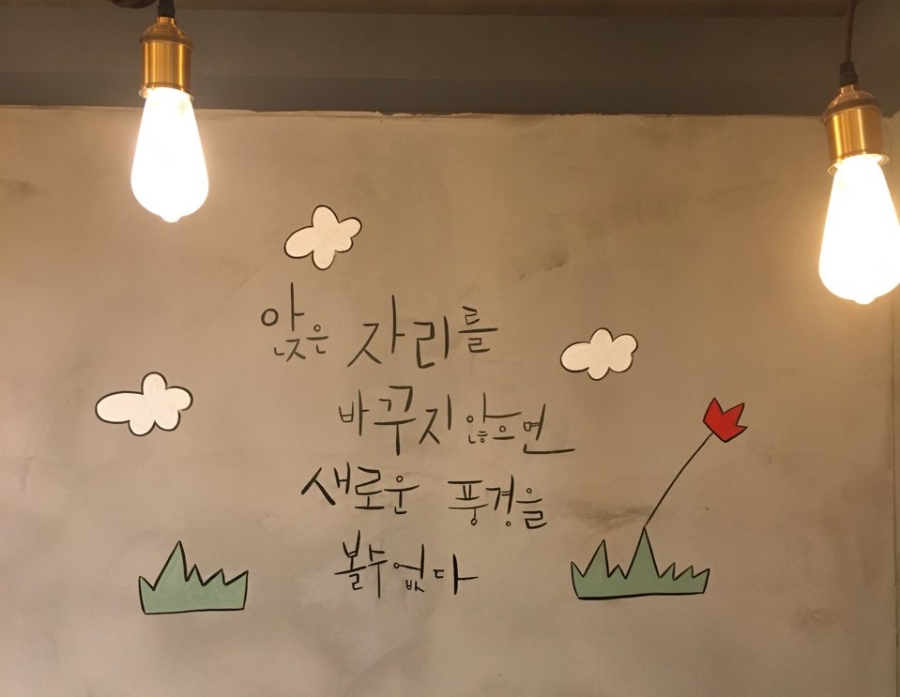 앉은 자리를
바꾸지 않으면
새로운 풍경을
볼수 없다